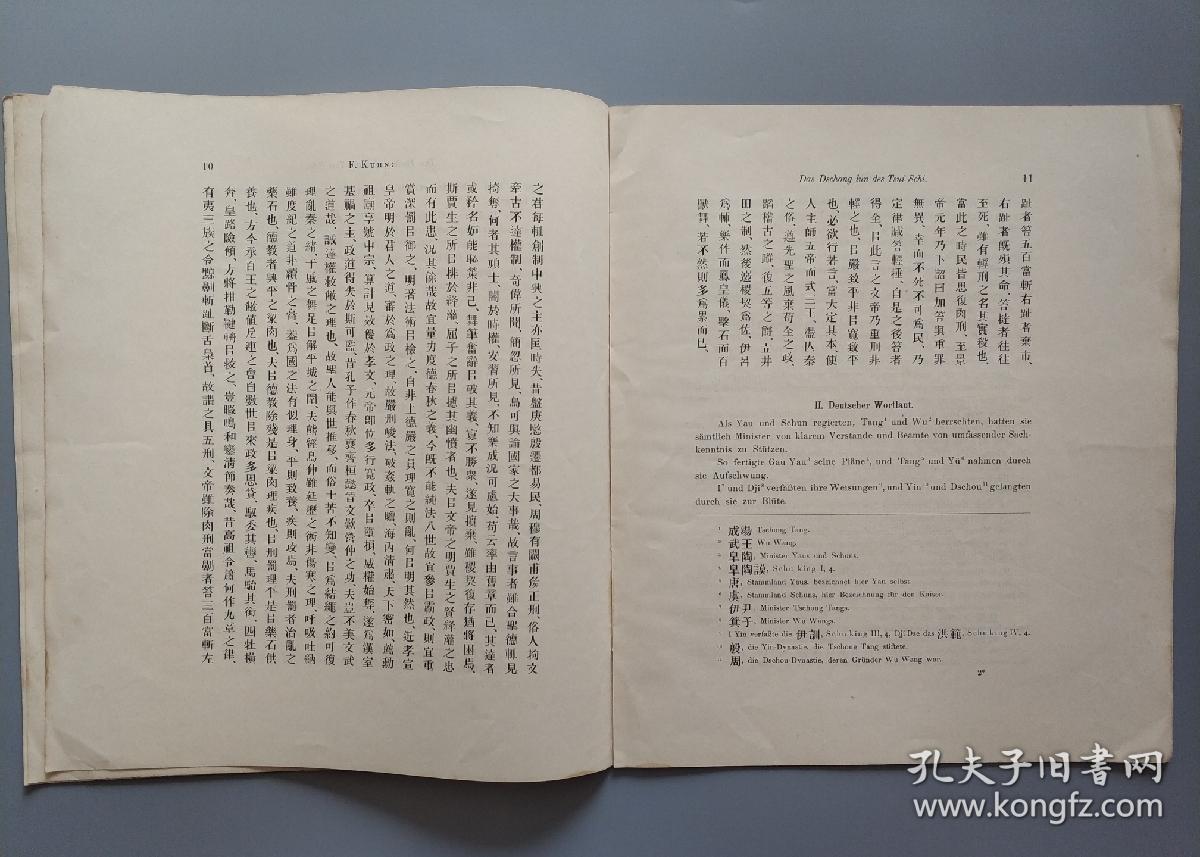 10
F. KUHN:
之君每輒創制中興之主亦匡時失昔盤庚愍殷遷都易民周穆有闕甫矦正刑俗人拘文
牽古不達權制、奇偉所聞、簡忽所見、烏可與論國家之大事哉、故言事者雖合聖德輒見
掎奪、何者其頑士、闇於時權、安習所見、不知樂成況可慮始苟云率由舊章而已、其達者
或矜名妒能恥策非己、舞筆奮辭㠯破其義、寡不勝衆、遂見擯棄、雖稷契復存猶將困焉、
斯賈生之所㠯排於絳灌、屈子之所㠯攄其幽憤者也、夫㠯文帝之明賈生之賢絳灌之忠
而有此患、況其餘哉故宜量力度德春秋之義今既不能純法八世故宜參㠯霸政則宜重
賞深罰㠯御之、明著法術㠯檢之、自非上德嚴之則理寬之則亂、何㠯明其然也、近孝宣
皇帝明於君人之道、審於爲政之理、故嚴刑峻法、破姦軌之膽、海內清肅、天下密如、薦勳
祖廟享號中宗、算計見效優於孝文、元帝即位多行寬政、卒㠯墮損、威權始奪、遂爲漢室
基禍之主、政道得失於斯可監、昔孔子作春秋襃齊桓懿晉文歎管仲之功夫豈不美文武
之道哉、誠達權救敝之理也、故聖人能與世推移、而俗士苦不知變、㠯爲結繩之約可復
理亂秦之緒、干戚之舞足㠯解平城之圍、夫熊經鳥伸雖延歷之術非傷寒之理、呼吸吐納
雖度紀之道非續骨之膏、蓋爲國之法有似理身、平則致養、疾則攻焉、夫刑罰者治亂之
藥石也、德教者興平之粱肉也、夫㠯德教除殘是㠯粱肉理疾也、㠯刑罰理平是㠯藥石供
養也、方今承百王之敝値戹運之會自數世㠯來政多恩貸、馭委其轡、馬駘其銜、四牡橫
奔、皇路險傾、方將拑勒鞬輈㠯救之、豈暇鳴和鑾清節奏哉、昔高祖令蕭何作九章之律、
有夷三族之令黥劓斬趾斷舌梟首、故謂之具五刑、文帝雖除肉刑當劓者笞三百當斬左
Das Dschong lun des Tsui Schi.
11
趾者笞五百當斬右趾者棄市、
右趾者既殞其命、笞撻者往往
至死、雖有輕刑之名其實殺也、
當此之時民皆思復肉刑、至景
帝元年乃下詔曰加笞與重罪
無異、幸而不死不可爲民、乃
定律減笞輕捶、自是之後笞者
得全、㠯此言之文帝乃重刑非
輕之也、㠯嚴致平非㠯寬致平
也、必欲行若言、當大定其本使
人主師五帝而式三王、盪亡秦
之俗、遵先聖之風棄苟全之政、
蹈稽古之蹤、復五等之爵、立井
田之制、然後選稷契爲佐、伊呂
爲輔、樂作而鳳皇儀、擊石而百
獸舞、若不然則多爲累而已、
II. Deutscher Wortlaut.
Als Yau und Schun regierten, Tang¹ und Wu² herrschten, hatten sie
sämtlich Minister von klarem Verstande und Beamte von umfassender Sach-
kenntnis zu Stützen.
So fertigte Gau Yau³ seine Pläne⁴, und Tang⁵ und Yü⁶ nahmen durch
sie Aufschwung.
I⁷ und Dji⁸ verfaßten ihre Weisungen⁹, und Yin¹⁰ und Dschou¹¹ gelangten
durch sie zur Blüte.
¹ 成湯 Tschong Tang.
² 武王 Wu Wang.
³ 皐陶, Minister Yaus und Schuns.
⁴ 皐陶謨, Schu king I, 4.
⁵ 唐, Stammland Yaus, bezeichnet hier Yau selbst.
⁶ 虞, Stammland Schuns, hier Bezeichnung für den Kaiser.
⁷ 伊尹, Minister Tschong Tangs.
⁸ 箕子, Minister Wu Wangs.
⁹ I Yin verfaßte die 伊訓, Schu king III, 4, Dji Dse das 洪範, Schu king IV, 4.
¹⁰ 殷, die Yin-Dynastie, die Tschong Tang stiftete.
¹¹ 周, die Dschou-Dynastie, deren Gründer Wu Wang war.
2*
孔夫子旧书网
www.kongfz.com